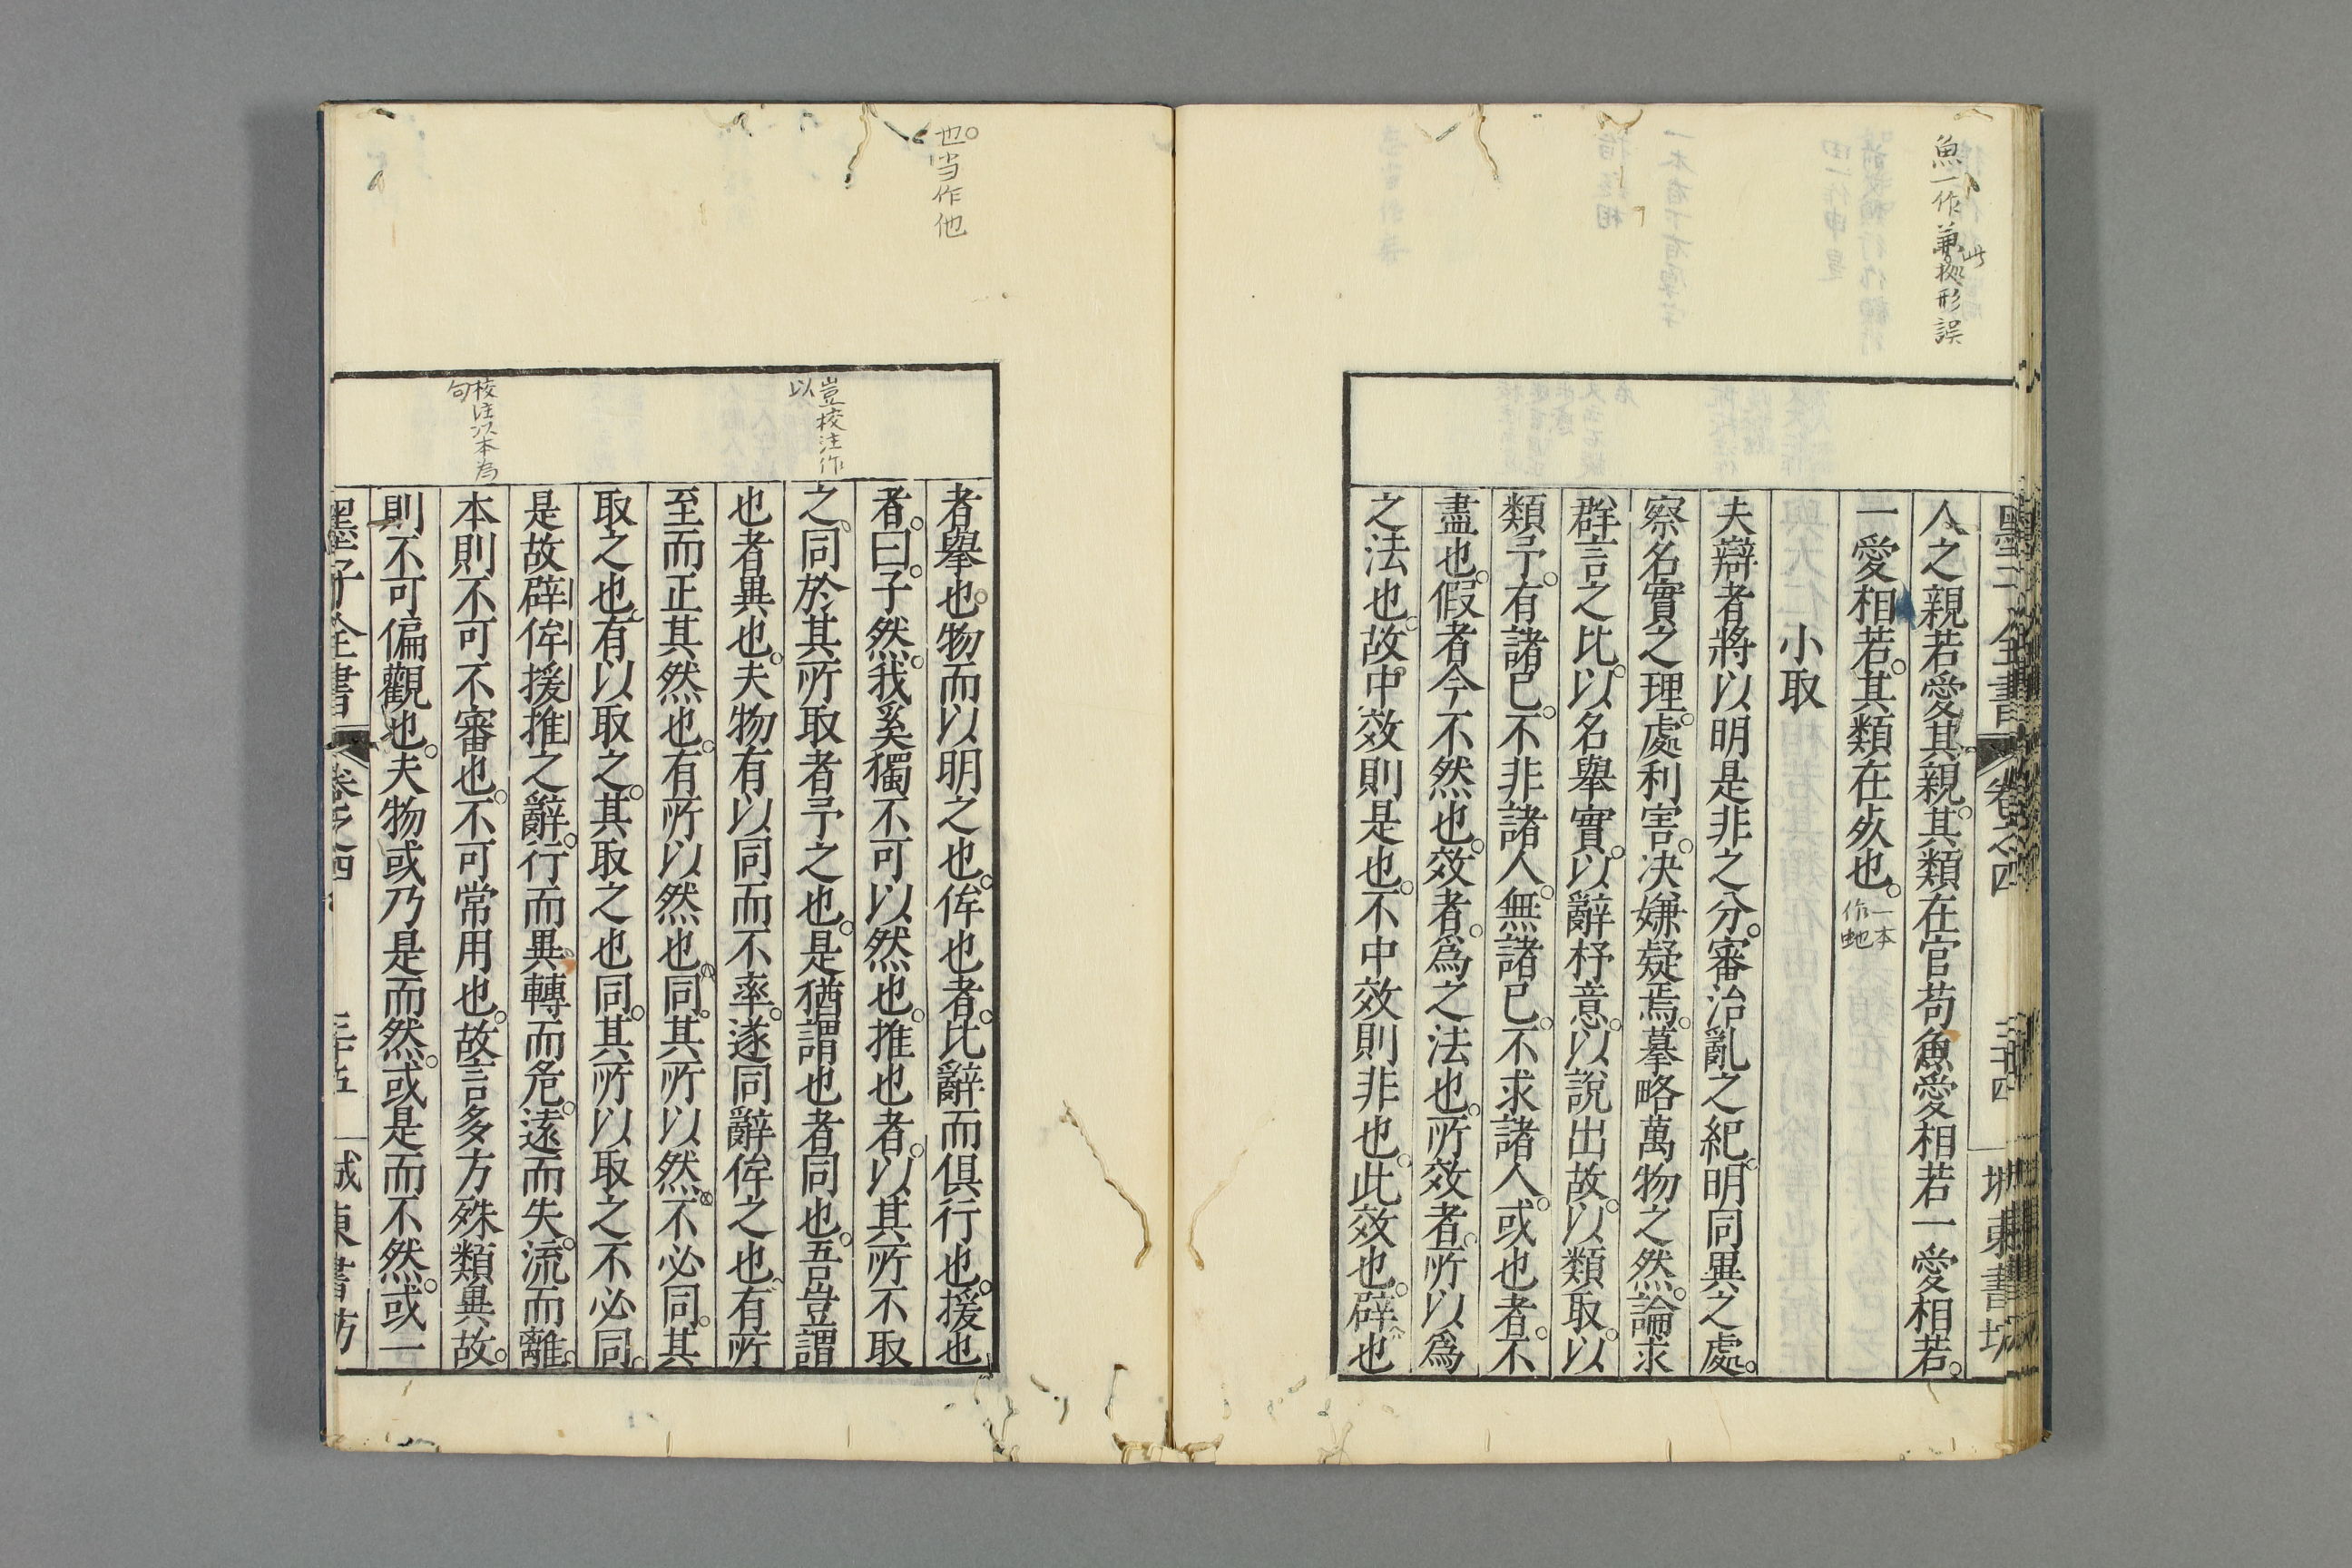 魚一作兼此拠形誤
墨子全書 卷之四 三十四 城東書坊
人之親若愛其親其類在官苟魚愛相若一愛相若
一愛相若其類在死也一本作虵
小取
夫辯者將以明是非之分審治亂之紀明同異之處
察名實之理處利害决嫌疑焉摹略萬物之然論求
群言之比以名舉實以辭杼意以說出故以類取以
類予有諸已不非諸人無諸已不求諸人或也者不
盡也假者今不然也效者爲之法也所效者所以爲
之法也故中效則是也不中效則非也此效也辟也
也当作他
豈校注作以
校注以本為句
者舉也物而以明之也侔也者比辭而俱行也援也
者曰子然我奚獨不可以然也推也者以其所不取
之同於其所取者予之也是猶謂也者同也吾豈謂
也者異也夫物有以同而不率遂同辭侔之也有所
至而正其然也有所以然也同其所以然不必同其
取之也有以取之其取之也同其所以取之不必同
是故辟侔援推之辭行而異轉而危遠而失流而離
本則不可不審也不可常用也故言多方殊類異故
則不可偏觀也夫物或乃是而然或是而不然或一
墨子全書 卷之四 三十五 城東書坊